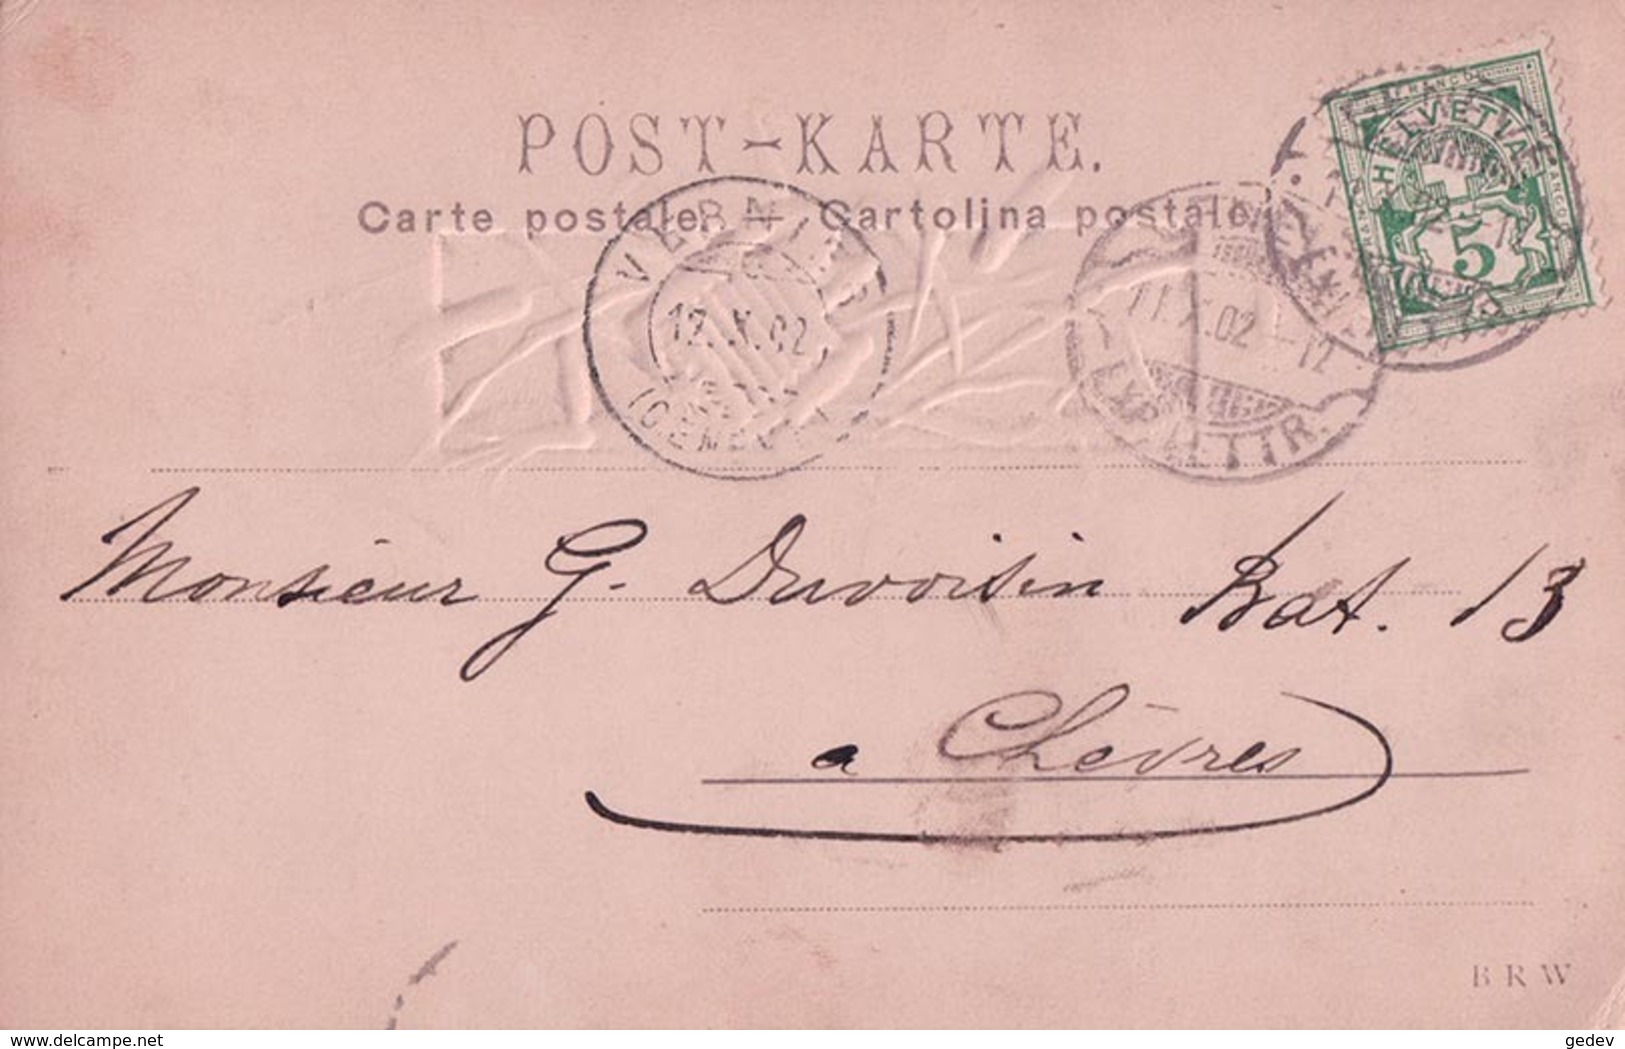 POST-KARTE.
Carte postale — Cartolina postale
FRANCO
HELVETIA
5
VERNIER
12.X.02
(GENEVE)
11.X.02 -12
EXP. LETTR.
Monsieur G. Duvoisin Bat. 13
a Chèvres
B R W
delcampe.net
gedev